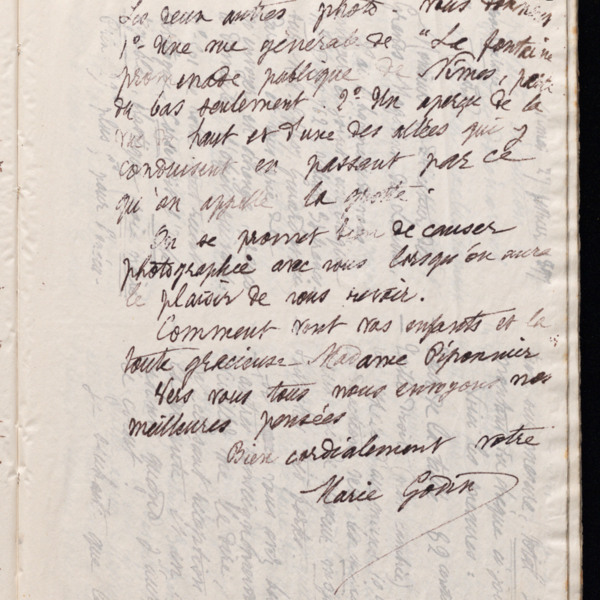 Les deux autres photo. vous donnent
1º Une vue générale de "La fontaine
promenade publique de Nîmes, partie
du bas seulement. 2º Un aperçu de la
vue du haut et d'une des allées qui y
conduisent en passant par ce
qu'on appelle la grotte.
On se promet bien de causer
photographie avec vous lorsqu'on aura
le plaisir de vous revoir.
Comment vont vos enfants et la
toute gracieuse Madame Piponnier
Vers vous tous nous envoyons nos
meilleures pensées
Bien cordialement votre
Marie Godin